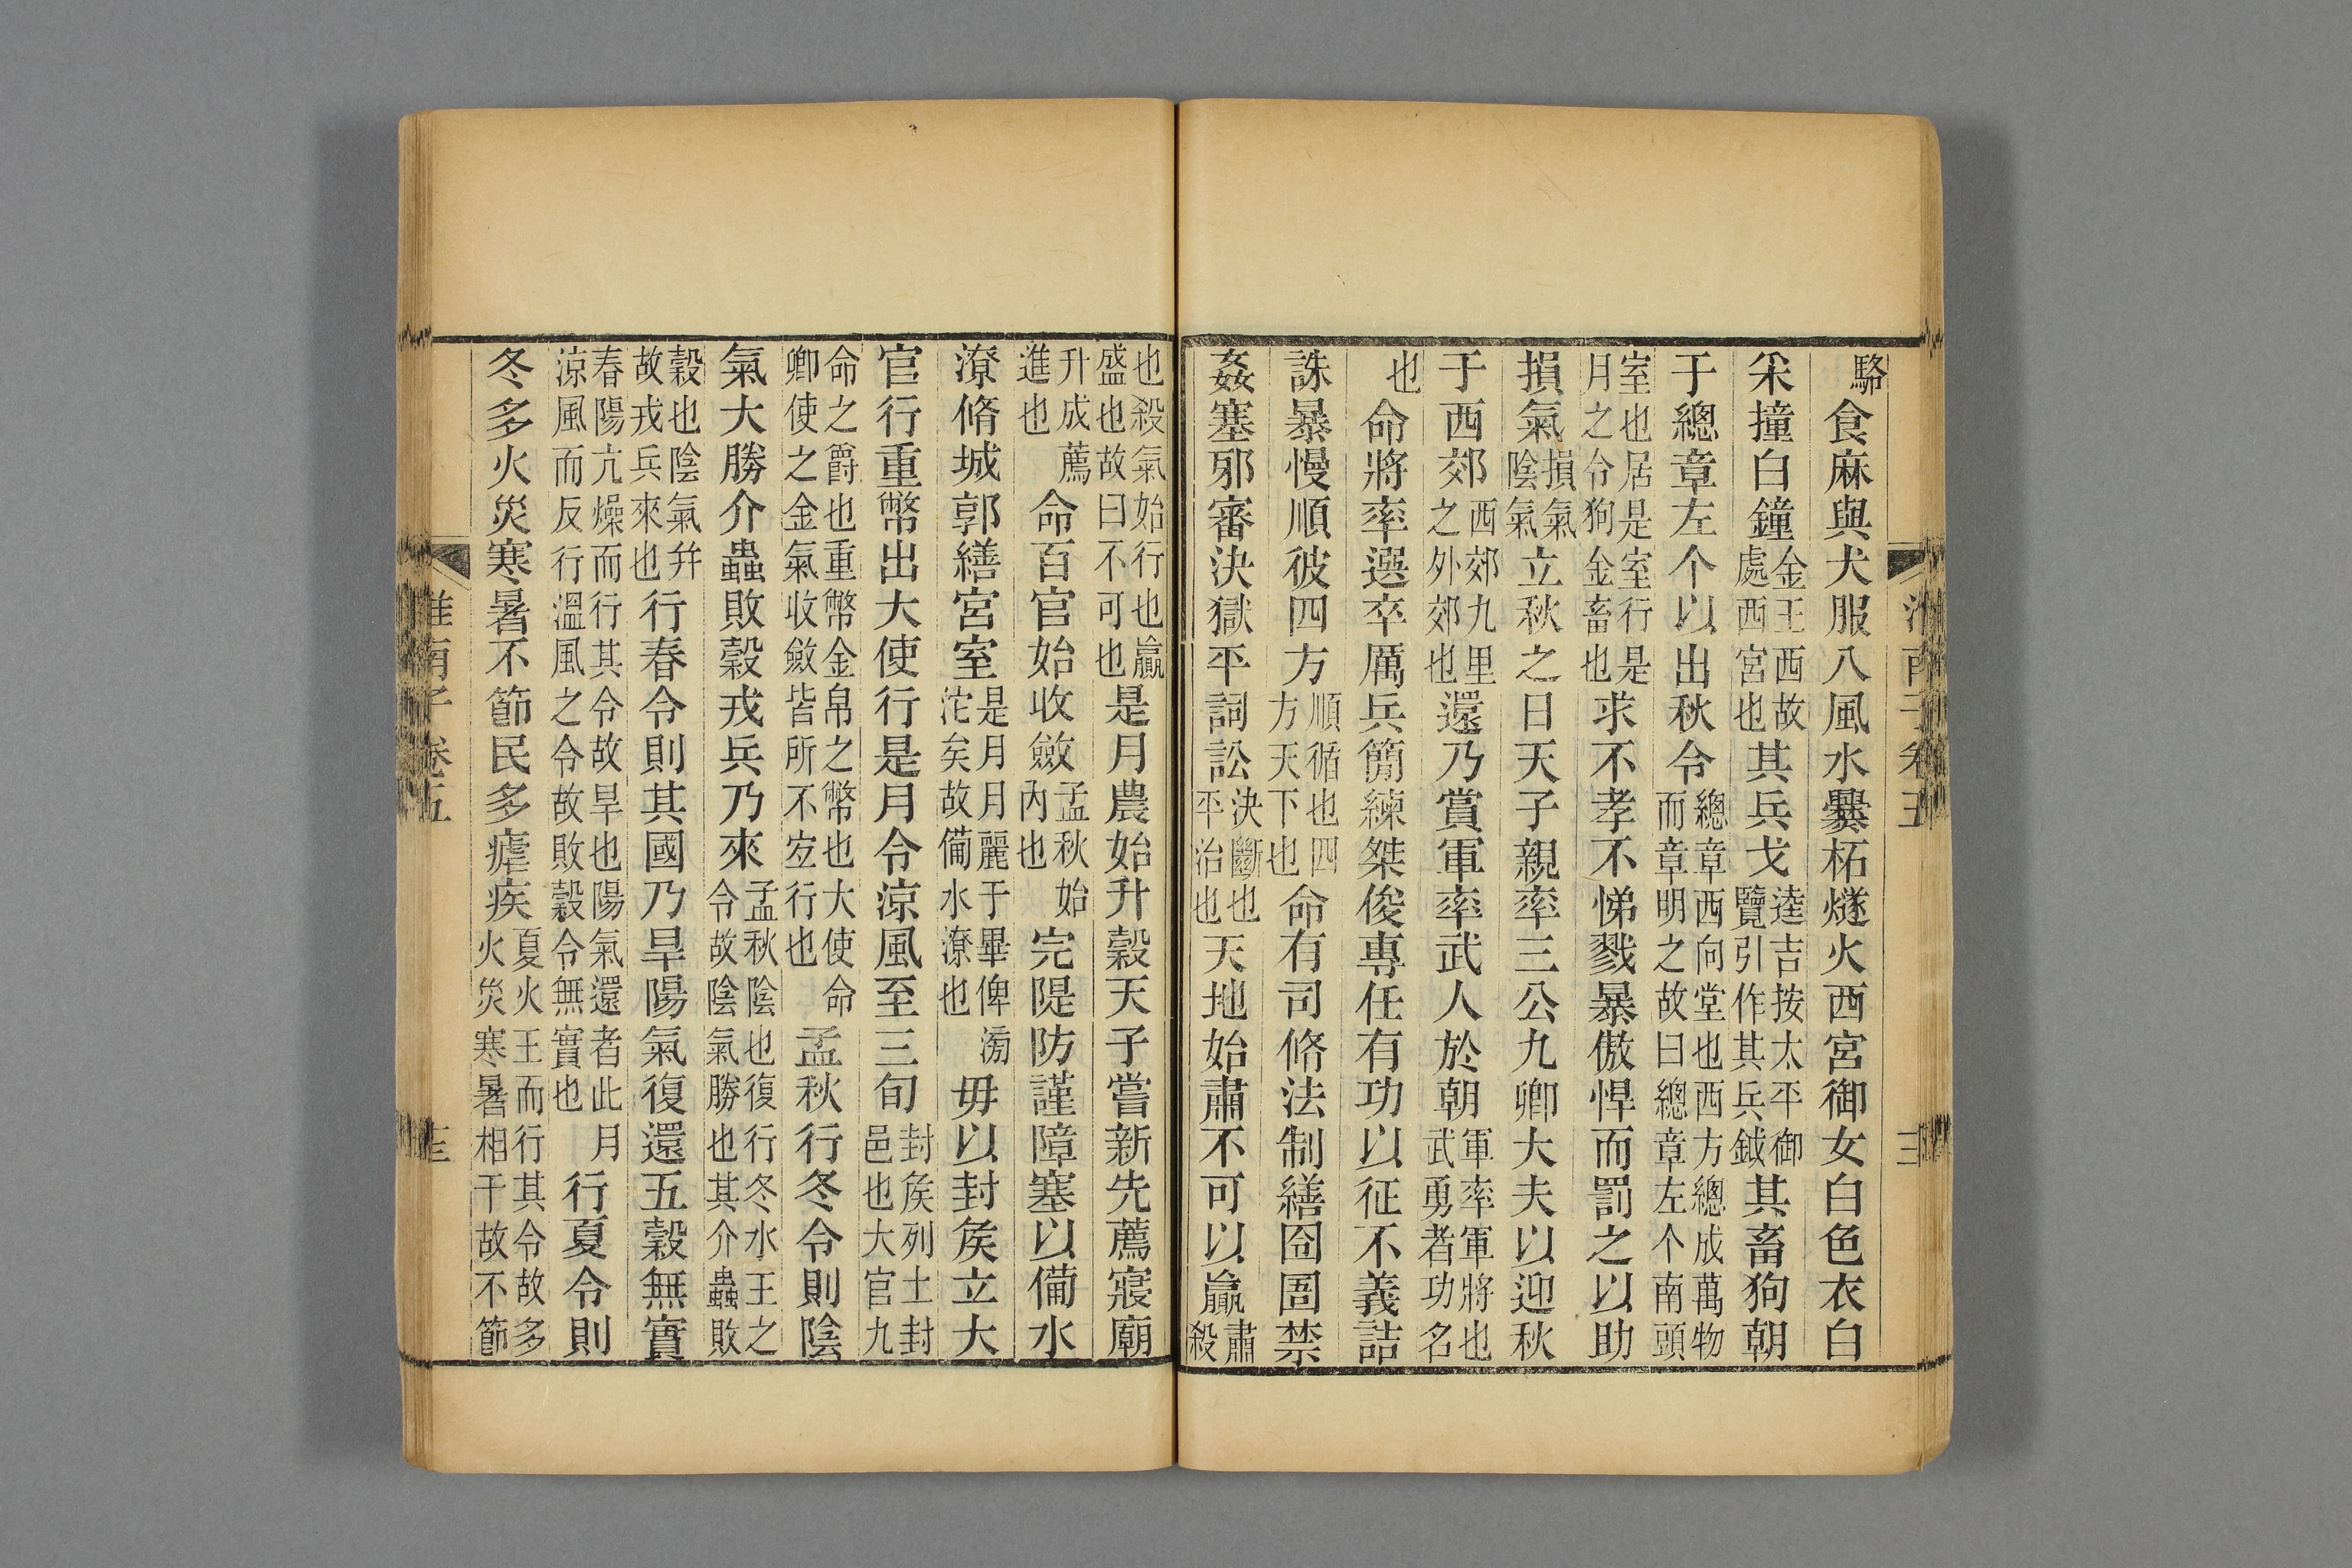 淮南子卷五 三
駱食麻與犬服八風水爨柘燧火西宮御女白色衣白
采撞白鐘金王西故處西宮也其兵戈逵吉按太平御覽引作其兵鉞其畜狗朝
于總章左个以出秋令總章西向堂也西方總成萬物而章明之故曰總章左个南頭
室也居是室行是月之令狗金畜也求不孝不悌戮暴傲悍而罰之以助
損氣損氣陰氣立秋之日天子親率三公九卿大夫以迎秋
于西郊西郊九里之外郊也還乃賞軍率武人於朝軍率軍將也武勇者功名
也命將率選卒厲兵簡練桀俊專任有功以征不義詰
誅暴慢順彼四方順循也四方天下也命有司脩法制繕囹圄禁
姦塞邪審決獄平詞訟決斷也平治也天地始肅不可以贏肅殺
也殺氣始行也贏盛也故曰不可也是月農始升穀天子嘗新先薦寢廟
升成薦進也命百官始收斂孟秋始內也完隄防謹障塞以備水
潦脩城郭繕宮室是月月麗于畢俾滂沱矣故備水潦也毋以封矦立大
官行重幣出大使行是月令涼風至三旬封矦列土封邑也大官九
命之爵也重幣金帛之幣也大使命卿使之金氣收斂皆所不宐行也孟秋行冬令則陰
氣大勝介蟲敗穀戎兵乃來孟秋陰也復行冬水王之令故陰氣勝也其介蟲敗
穀也陰氣并故戎兵來也行春令則其國乃旱陽氣復還五穀無實
春陽亢燥而行其令故旱也陽氣還者此月涼風而反行溫風之令故敗穀令無實也行夏令則
冬多火災寒暑不節民多瘧疾夏火王而行其令故多火災寒暑相干故不節
淮南子 卷五